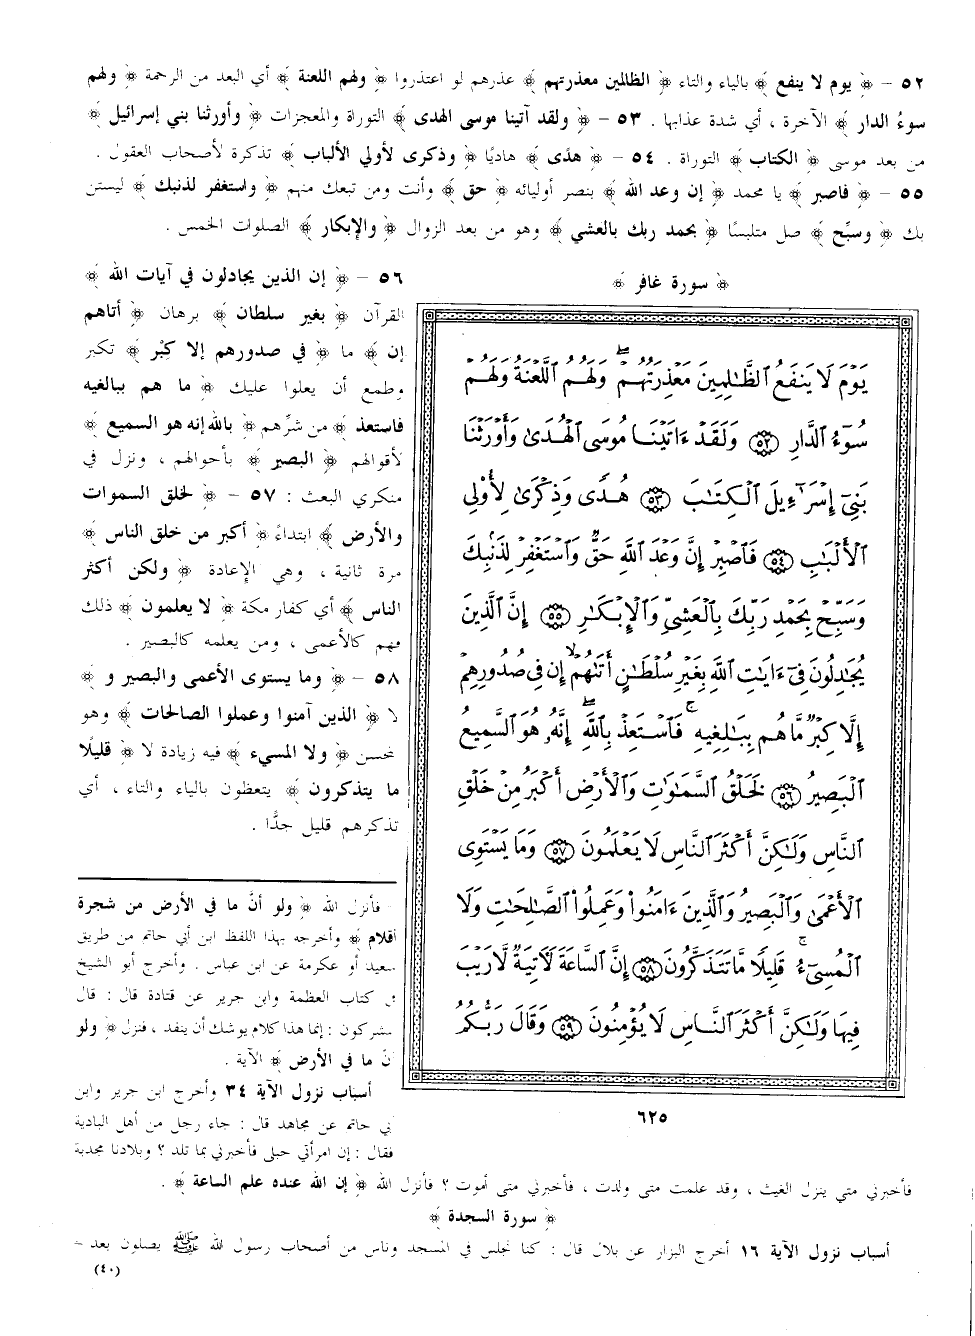 ٥٢ - ﴿ يوم لا ينفع ﴾ بالياء والتاء ﴿ الظالمين معذرتهم ﴾ عذرهم لو اعتذروا ﴿ ولهم اللعنة ﴾ أي البعد من الرحمة ﴿ ولهم
سوءُ الدار ﴾ الآخرة ، أي شدة عذابها . ٥٣ - ﴿ ولقد آتينا موسى الهدى ﴾ التوراة والمعجزات ﴿ وأورثنا بني إسرائيل ﴾
من بعد موسى ﴿ الكتاب ﴾ التوراة . ٥٤ - ﴿ هدًى ﴾ هاديًا ﴿ وذكرى لأولي الألباب ﴾ تذكرة لأصحاب العقول .
٥٥ - ﴿ فاصبر ﴾ يا محمد ﴿ إن وعد الله ﴾ بنصر أوليائه ﴿ حق ﴾ وأنت ومن تبعك منهم ﴿ واستغفر لذنبك ﴾ ليستن
بك ﴿ وسبِّح ﴾ صل متلبسًا ﴿ بحمد ربك بالعشي ﴾ وهو من بعد الزوال ﴿ والإبكار ﴾ الصلوات الخمس .
﴿ سورة غافر ﴾
يَوْمَ لَا يَنفَعُ ٱلظَّٰلِمِينَ مَعْذِرَتُهُمْ ۖ وَلَهُمُ ٱللَّعْنَةُ وَلَهُمْ
سُوٓءُ ٱلدَّارِ ٥٢ وَلَقَدْ ءَاتَيْنَا مُوسَى ٱلْهُدَىٰ وَأَوْرَثْنَا
بَنِىٓ إِسْرَٰٓءِيلَ ٱلْكِتَٰبَ ٥٣ هُدًى وَذِكْرَىٰ لِأُو۟لِى
ٱلْأَلْبَٰبِ ٥٤ فَٱصْبِرْ إِنَّ وَعْدَ ٱللَّهِ حَقٌّ وَٱسْتَغْفِرْ لِذَنۢبِكَ
وَسَبِّحْ بِحَمْدِ رَبِّكَ بِٱلْعَشِىِّ وَٱلْإِبْكَٰرِ ٥٥ إِنَّ ٱلَّذِينَ
يُجَٰدِلُونَ فِىٓ ءَايَٰتِ ٱللَّهِ بِغَيْرِ سُلْطَٰنٍ أَتَىٰهُمْ ۙ إِن فِى صُدُورِهِمْ
إِلَّا كِبْرٌ مَّا هُم بِبَٰلِغِيهِ ۚ فَٱسْتَعِذْ بِٱللَّهِ ۖ إِنَّهُۥ هُوَ ٱلسَّمِيعُ
ٱلْبَصِيرُ ٥٦ لَخَلْقُ ٱلسَّمَٰوَٰتِ وَٱلْأَرْضِ أَكْبَرُ مِنْ خَلْقِ
ٱلنَّاسِ وَلَٰكِنَّ أَكْثَرَ ٱلنَّاسِ لَا يَعْلَمُونَ ٥٧ وَمَا يَسْتَوِى
ٱلْأَعْمَىٰ وَٱلْبَصِيرُ وَٱلَّذِينَ ءَامَنُوا۟ وَعَمِلُوا۟ ٱلصَّٰلِحَٰتِ وَلَا
ٱلْمُسِىٓءُ ۚ قَلِيلًا مَّا تَتَذَكَّرُونَ ٥٨ إِنَّ ٱلسَّاعَةَ لَءَاتِيَةٌ لَّا رَيْبَ
فِيهَا وَلَٰكِنَّ أَكْثَرَ ٱلنَّاسِ لَا يُؤْمِنُونَ ٥٩ وَقَالَ رَبُّكُمُ
٦٢٥
٥٦ - ﴿ إن الذين يجادلون في آيات الله ﴾
القرآن ﴿ بغير سلطان ﴾ برهان ﴿ أتاهم
إن ﴾ ما ﴿ في صدورهم إلا كِبْر ﴾ تكبر
وطمع أن يعلوا عليك ﴿ ما هم ببالغيه
فاستعذ ﴾ من شرِّهم ﴿ بالله إنه هو السميع ﴾
لأقوالهم ﴿ البصير ﴾ بأحوالهم ، ونزل في
منكري البعث : ٥٧ - ﴿ لخلق السموات
والأرض ﴾ ابتداءً ﴿ أكبر من خلق الناس ﴾
مرة ثانية ، وهي الإعادة ﴿ ولكن أكثر
الناس ﴾ أي كفار مكة ﴿ لا يعلمون ﴾ ذلك
فهم كالأعمى ، ومن يعلمه كالبصير .
٥٨ - ﴿ وما يستوى الأعمى والبصير و ﴾
لا ﴿ الذين آمنوا وعملوا الصالحات ﴾ وهو
محسن ﴿ ولا المسيء ﴾ فيه زيادة لا ﴿ قليلًا
ما يتذكرون ﴾ يتعظون بالياء والتاء ، أي
تذكرهم قليل جدًّا .
فأنزل الله ﴿ ولو أنَّ ما في الأرض من شجرة
أقلام ﴾ وأخرجه بهذا اللفظ ابن أبي حاتم من طريق
سعيد أو عكرمة عن ابن عباس . وأخرج أبو الشيخ
كتاب العظمة وابن جرير عن قتادة قال : قال
شركون : إنما هذا كلام يوشك أن ينفد ، فنزل ﴿ ولو
نَّ ما في الأرض ﴾ الآية .
أسباب نزول الآية ٣٤ وأخرج ابن جرير وابن
بي حاتم عن مجاهد قال : جاء رجل من أهل البادية
فقال : إن امرأتي حبلى فأخبرني بما تلد ؟ وبلادنا مجدبة
فأخبرني متى ينزل الغيث ، وقد علمت متى ولدت ، فأخبرني متى أموت ؟ فأنزل الله ﴿ إن الله عنده علم الساعة ﴾ .
﴿ سورة السجدة ﴾
أسباب نزول الآية ١٦ أخرج البزار عن بلال قال : كنا نجلس في المسجد وناس من أصحاب رسول الله ﷺ يصلون بعد -
(٤٠)